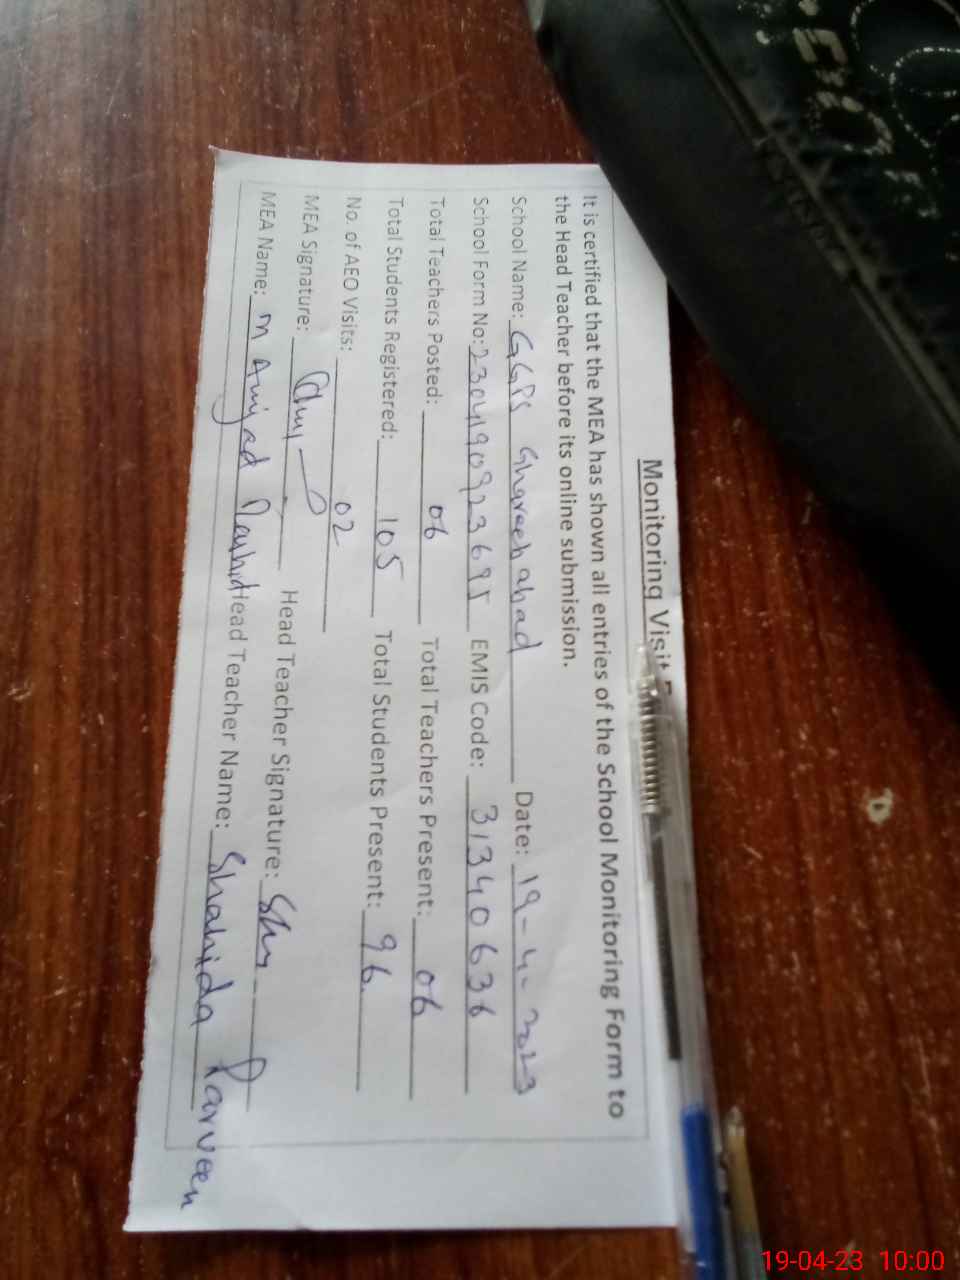 Monitoring Visit
It is certified that the MEA has shown all entries of the School Monitoring Form to
the Head Teacher before its online submission.
School Name: GGPS Ghareeb abad Date: 19-4-2023
School Form No: 230419092369 EMIS Code: 31340636
Total Teachers Posted: 06 Total Teachers Present: 06
Total Students Registered: 105 Total Students Present: 96
No. of AEO Visits: 02
MEA Signature: Head Teacher Signature:
MEA Name: M Amjad Rashid Head Teacher Name: Shahida Parveen
19-04-23 10:00